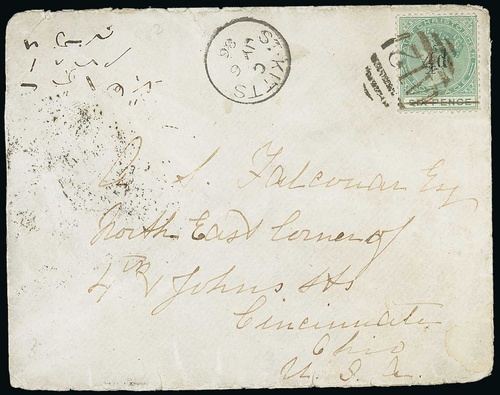 ST. KITTS
C
JY 6
86
ST. CHRISTOPHER
4d.
SIX PENCE
A12
S. Falconar Esq
North East Corner of
4th & Johns Sts
Cincinnati
Ohio
U. S. A.